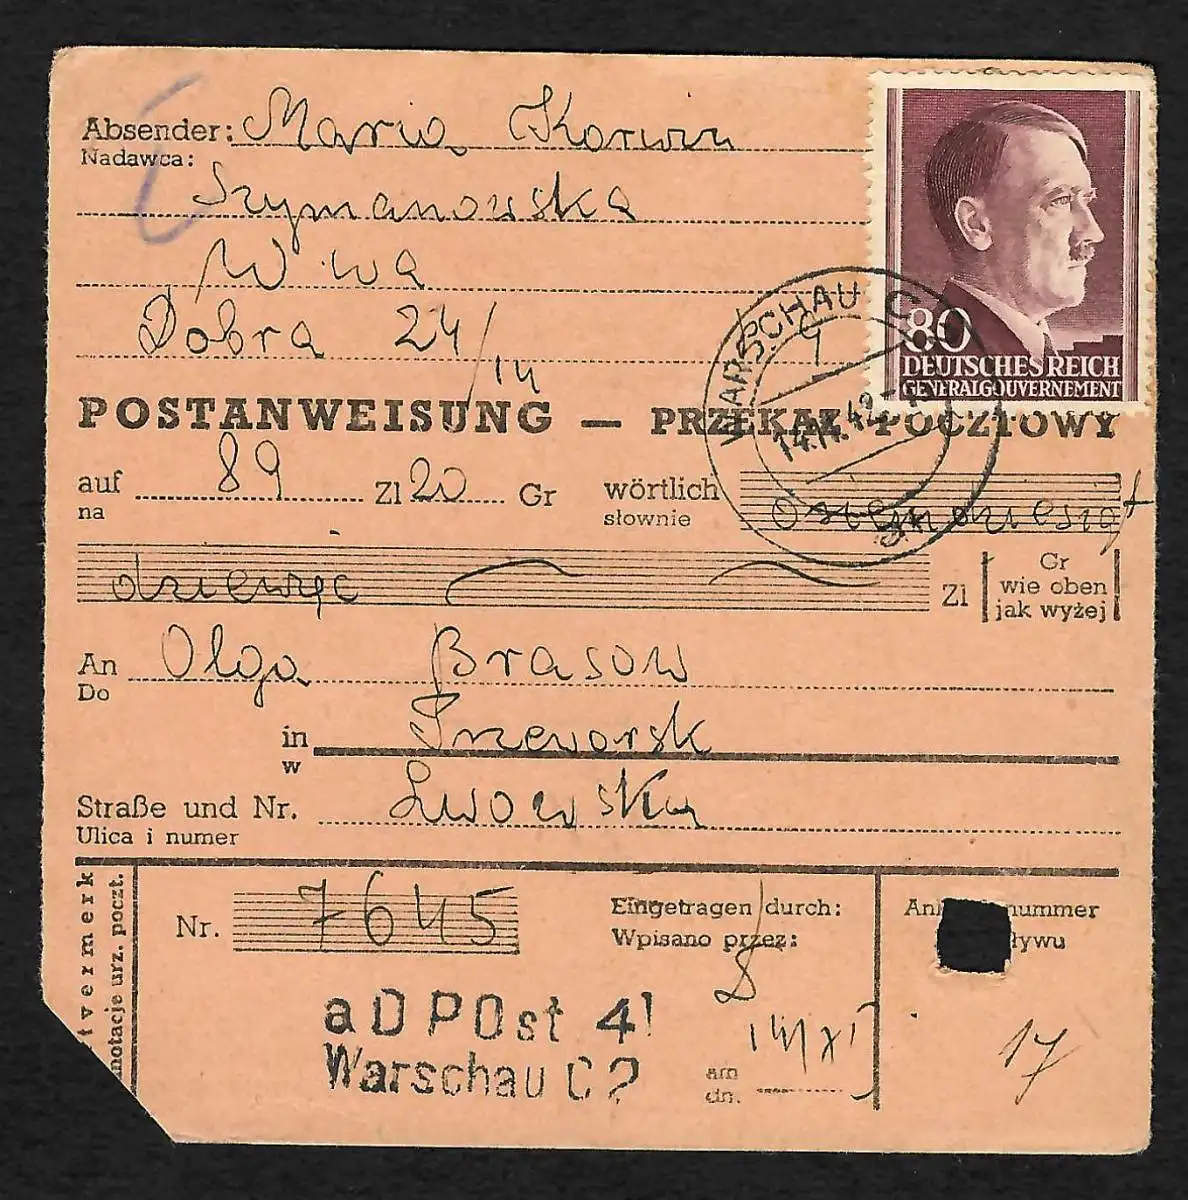 Absender: Maria Korwin
Nadawca:
Szymanowska
W-wa
Dobra 24/14
80
DEUTSCHES REICH
GENERALGOUVERNEMENT
WARSCHAU C
14.11.42
POSTANWEISUNG — PRZEKAZ POCZTOWY
auf 89 Zl 20 Gr wörtlich osiemdziesiąt
na słownie
dziewięć Zl Gr
wie oben
jak wyżej
An Olga Brasow
Do
in Przeworsk
w
Straße und Nr. Lwowska
Ulica i numer
Nr. 7645
Eingetragen durch:
Wpisano przez:
aDPOst 4!
Warschau C2
am 14/XI
dn.
nummer
ływu
17
tvermerk
notacje urz. poczt.